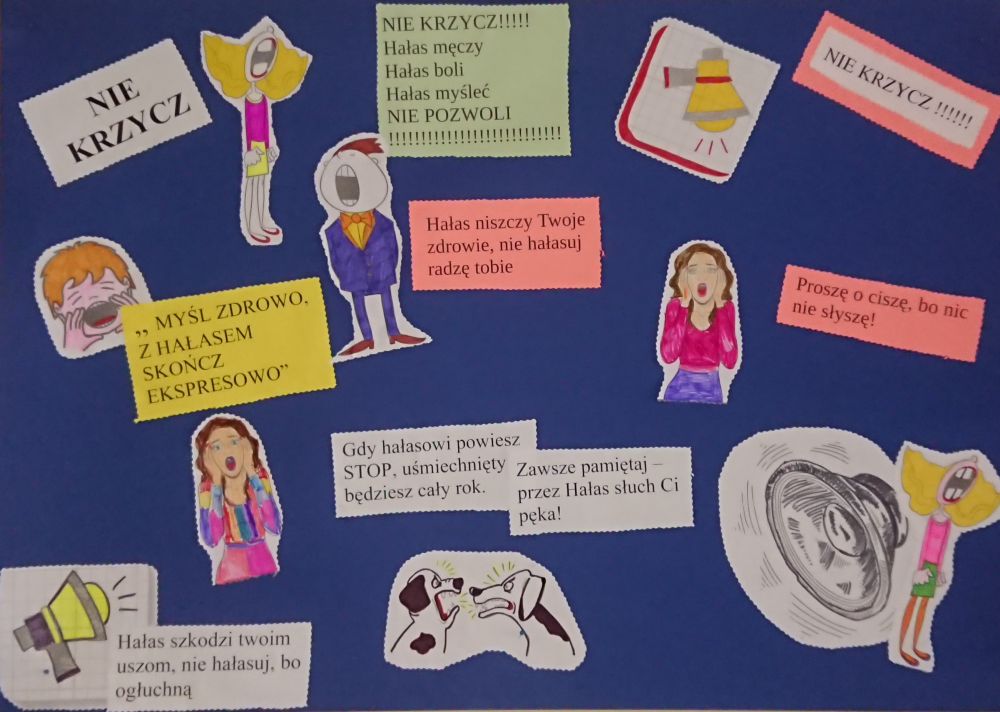 NIE
KRZYCZ
NIE KRZYCZ!!!!!
Hałas męczy
Hałas boli
Hałas myśleć
NIE POZWOLI
!!!!!!!!!!!!!!!!!!!!!!!!!!!!
NIE KRZYCZ !!!!!!
Hałas niszczy Twoje
zdrowie, nie hałasuj
radzę tobie
Proszę o ciszę, bo nic
nie słyszę!
,, MYŚL ZDROWO,
Z HAŁASEM
SKOŃCZ
EKSPRESOWO”
Gdy hałasowi powiesz
STOP, uśmiechnięty
będziesz cały rok.
Zawsze pamiętaj –
przez Hałas słuch Ci
pęka!
Hałas szkodzi twoim
uszom, nie hałasuj, bo
ogłuchną